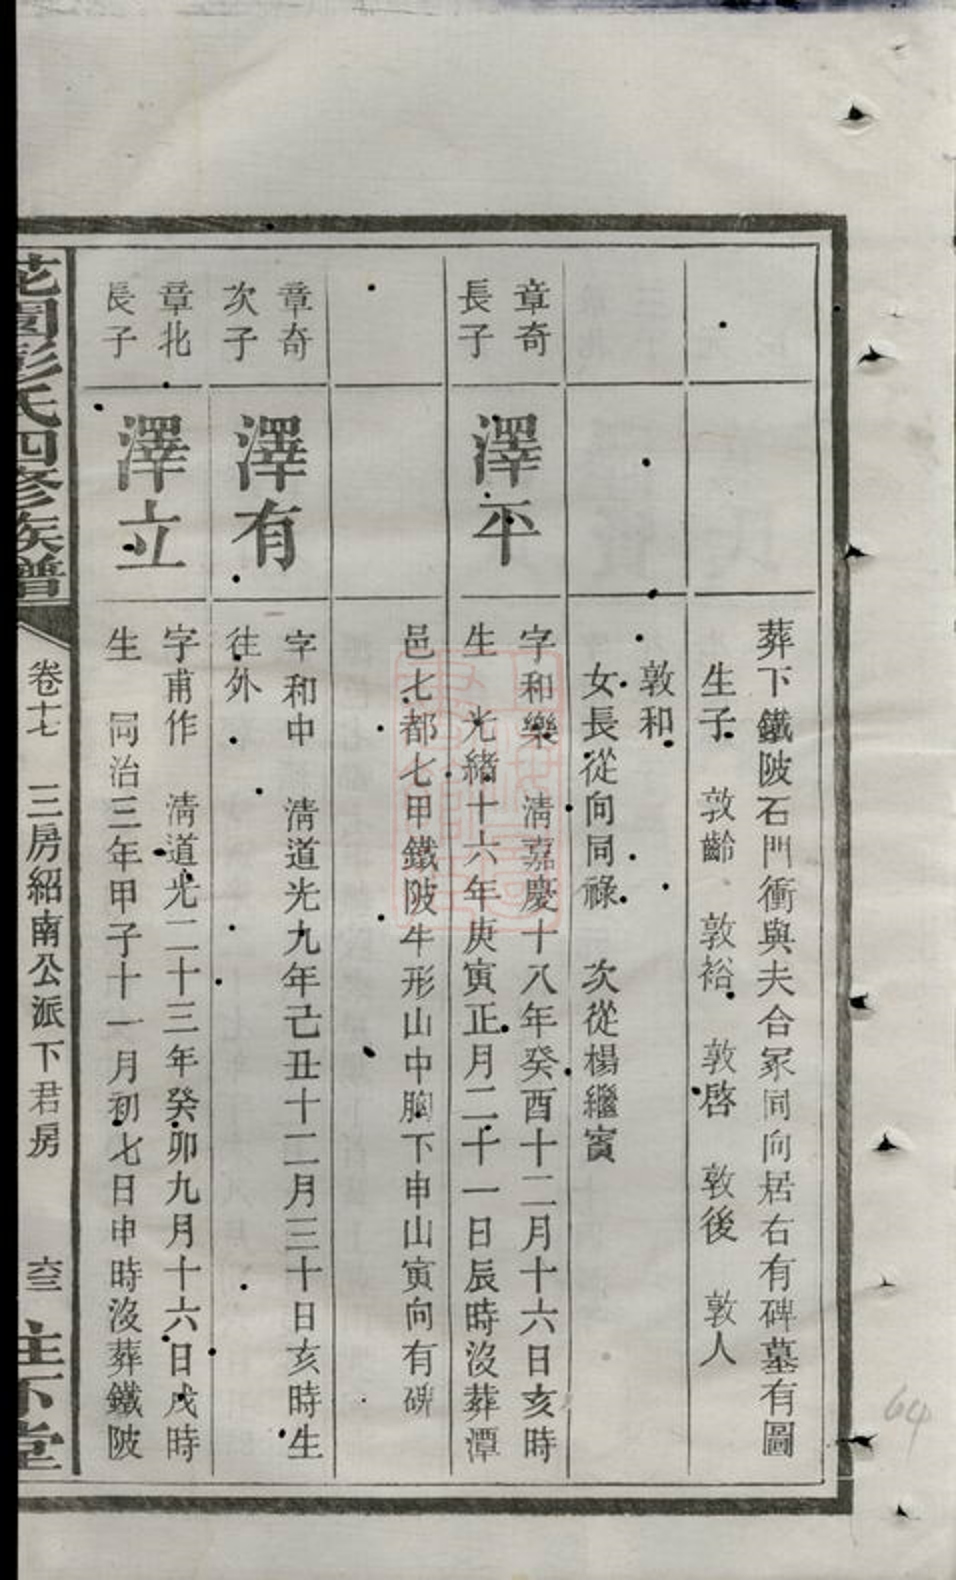 葬下鐵陂石門衝與夫合冢同向居右有碑墓有圖
生子 敦齡 敦裕 敦啓 敦後 敦人
敦和
女長從向同祿 次從楊繼賓
章奇
長子
澤平
字和樂 淸嘉慶十八年癸酉十二月十六日亥時
生 光緒十六年庚寅正月二十一日辰時沒葬潭
邑七都七甲鐵陂牛形山中胸下申山寅向有碑
章奇
次子
澤有
字和中 淸道光九年己丑十二月三十日亥時生
往外
章北
長子
澤立
字甫作 淸道光二十三年癸卯九月十六日戌時
生 同治三年甲子十一月初七日申時沒葬鐵陂
花園彭氏四修族譜
卷十七 三房紹南公派下君房
64